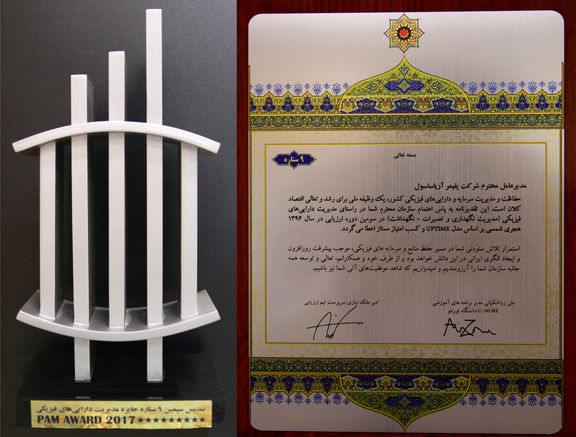 تندیس سیمین ۹ ستاره جایزه مدیریت دارایی‌های فیزیکی
PAM AWARD 2017 ★★★★★★★★★
بسمه تعالی
۹ ستاره
مدیرعامل محترم شرکت پلیمر آریاساسول
حفاظت و مدیریت سرمایه و دارایی‌های فیزیکی کشور، یک وظیفه ملی برای رشد و تعالی اقتصاد
کلان است. این تقدیرنامه به پاس اهتمام سازمان محترم شما در راستای مدیریت دارایی‌های
فیزیکی (مدیریت نگهداری و تعمیرات - نگهداشت) در سومین دوره ارزیابی در سال ۱۳۹۶
هجری شمسی بر اساس مدل UPTIME و کسب امتیاز ممتاز اعطا می گردد.
استمرار تلاش ستودنی شما در مسیر حفظ منابع و سرمایه های فیزیکی، موجب پیشرفت روزافزون
و ایجاد الگوی ایرانی در این دانش خواهد بود و از طرف خود و همکارانم، تعالی و توسعه همه
جانبه سازمان شما را آرزومندیم و امیدواریم که شاهد موفقیت‌های آتی شما نیز باشیم.
علی زواشکیانی مدیر برنامه های آموزشی
C-MORE دانشگاه تورنتو
امیر ملک نیازی سرپرست تیم ارزیابی